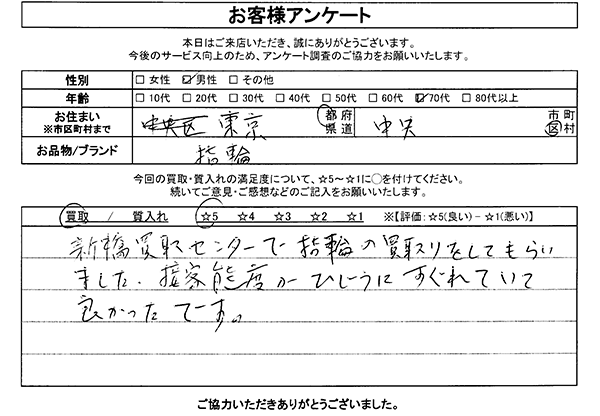 お客様アンケート
本日はご来店いただき、誠にありがとうございます。
今後のサービス向上のため、アンケート調査のご協力をお願いいたします。
性別 □ 女性 ☑ 男性 □ その他
年齢 □ 10代 □ 20代 □ 30代 □ 40代 □ 50代 □ 60代 ☑ 70代 □ 80代以上
お住まい ※市区町村まで 中央区 東京 都府県道 中央 市町区村
お品物/ブランド 指輪
今回の買取・質入れの満足度について、☆5～☆1に○を付けてください。
続いてご意見・ご感想などのご記入をお願いいたします。
買取 / 質入れ ☆5 ☆4 ☆3 ☆2 ☆1 ※【評価：☆5(良い) - ☆1(悪い)】
新橋買取センターで指輪の買取りをしてもらい
ました、接客態度がひじょうにすぐれていて
良かったです。
ご協力いただきありがとうございました。